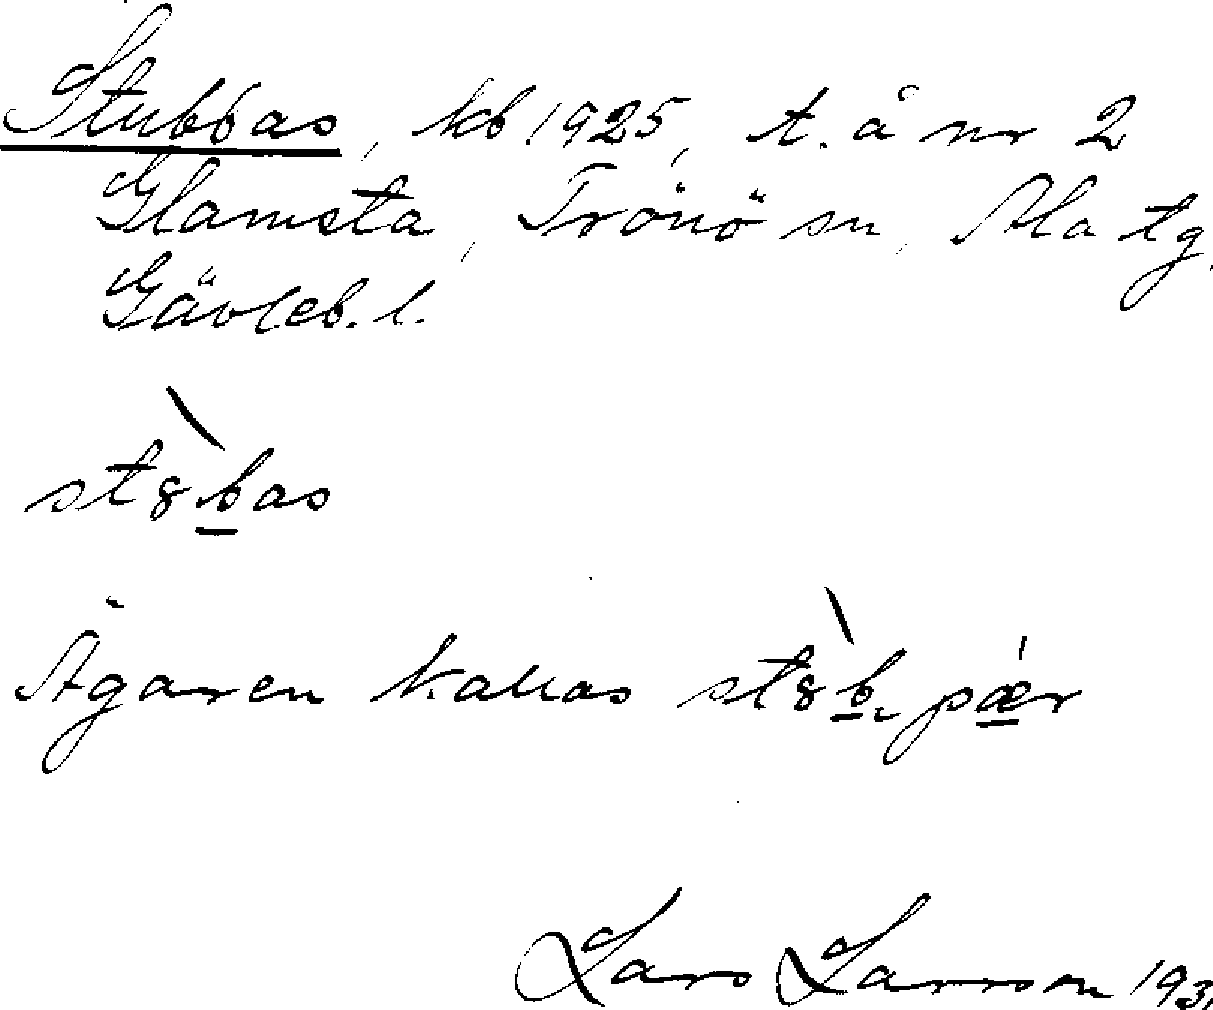 Stubbas, kb 1925, t. å nr 2
Glamsta, Trönö sn, Ala tg.
Gävleb. l.
st8bas
Ägaren kallas st8b, pær
Lars Larsson 193